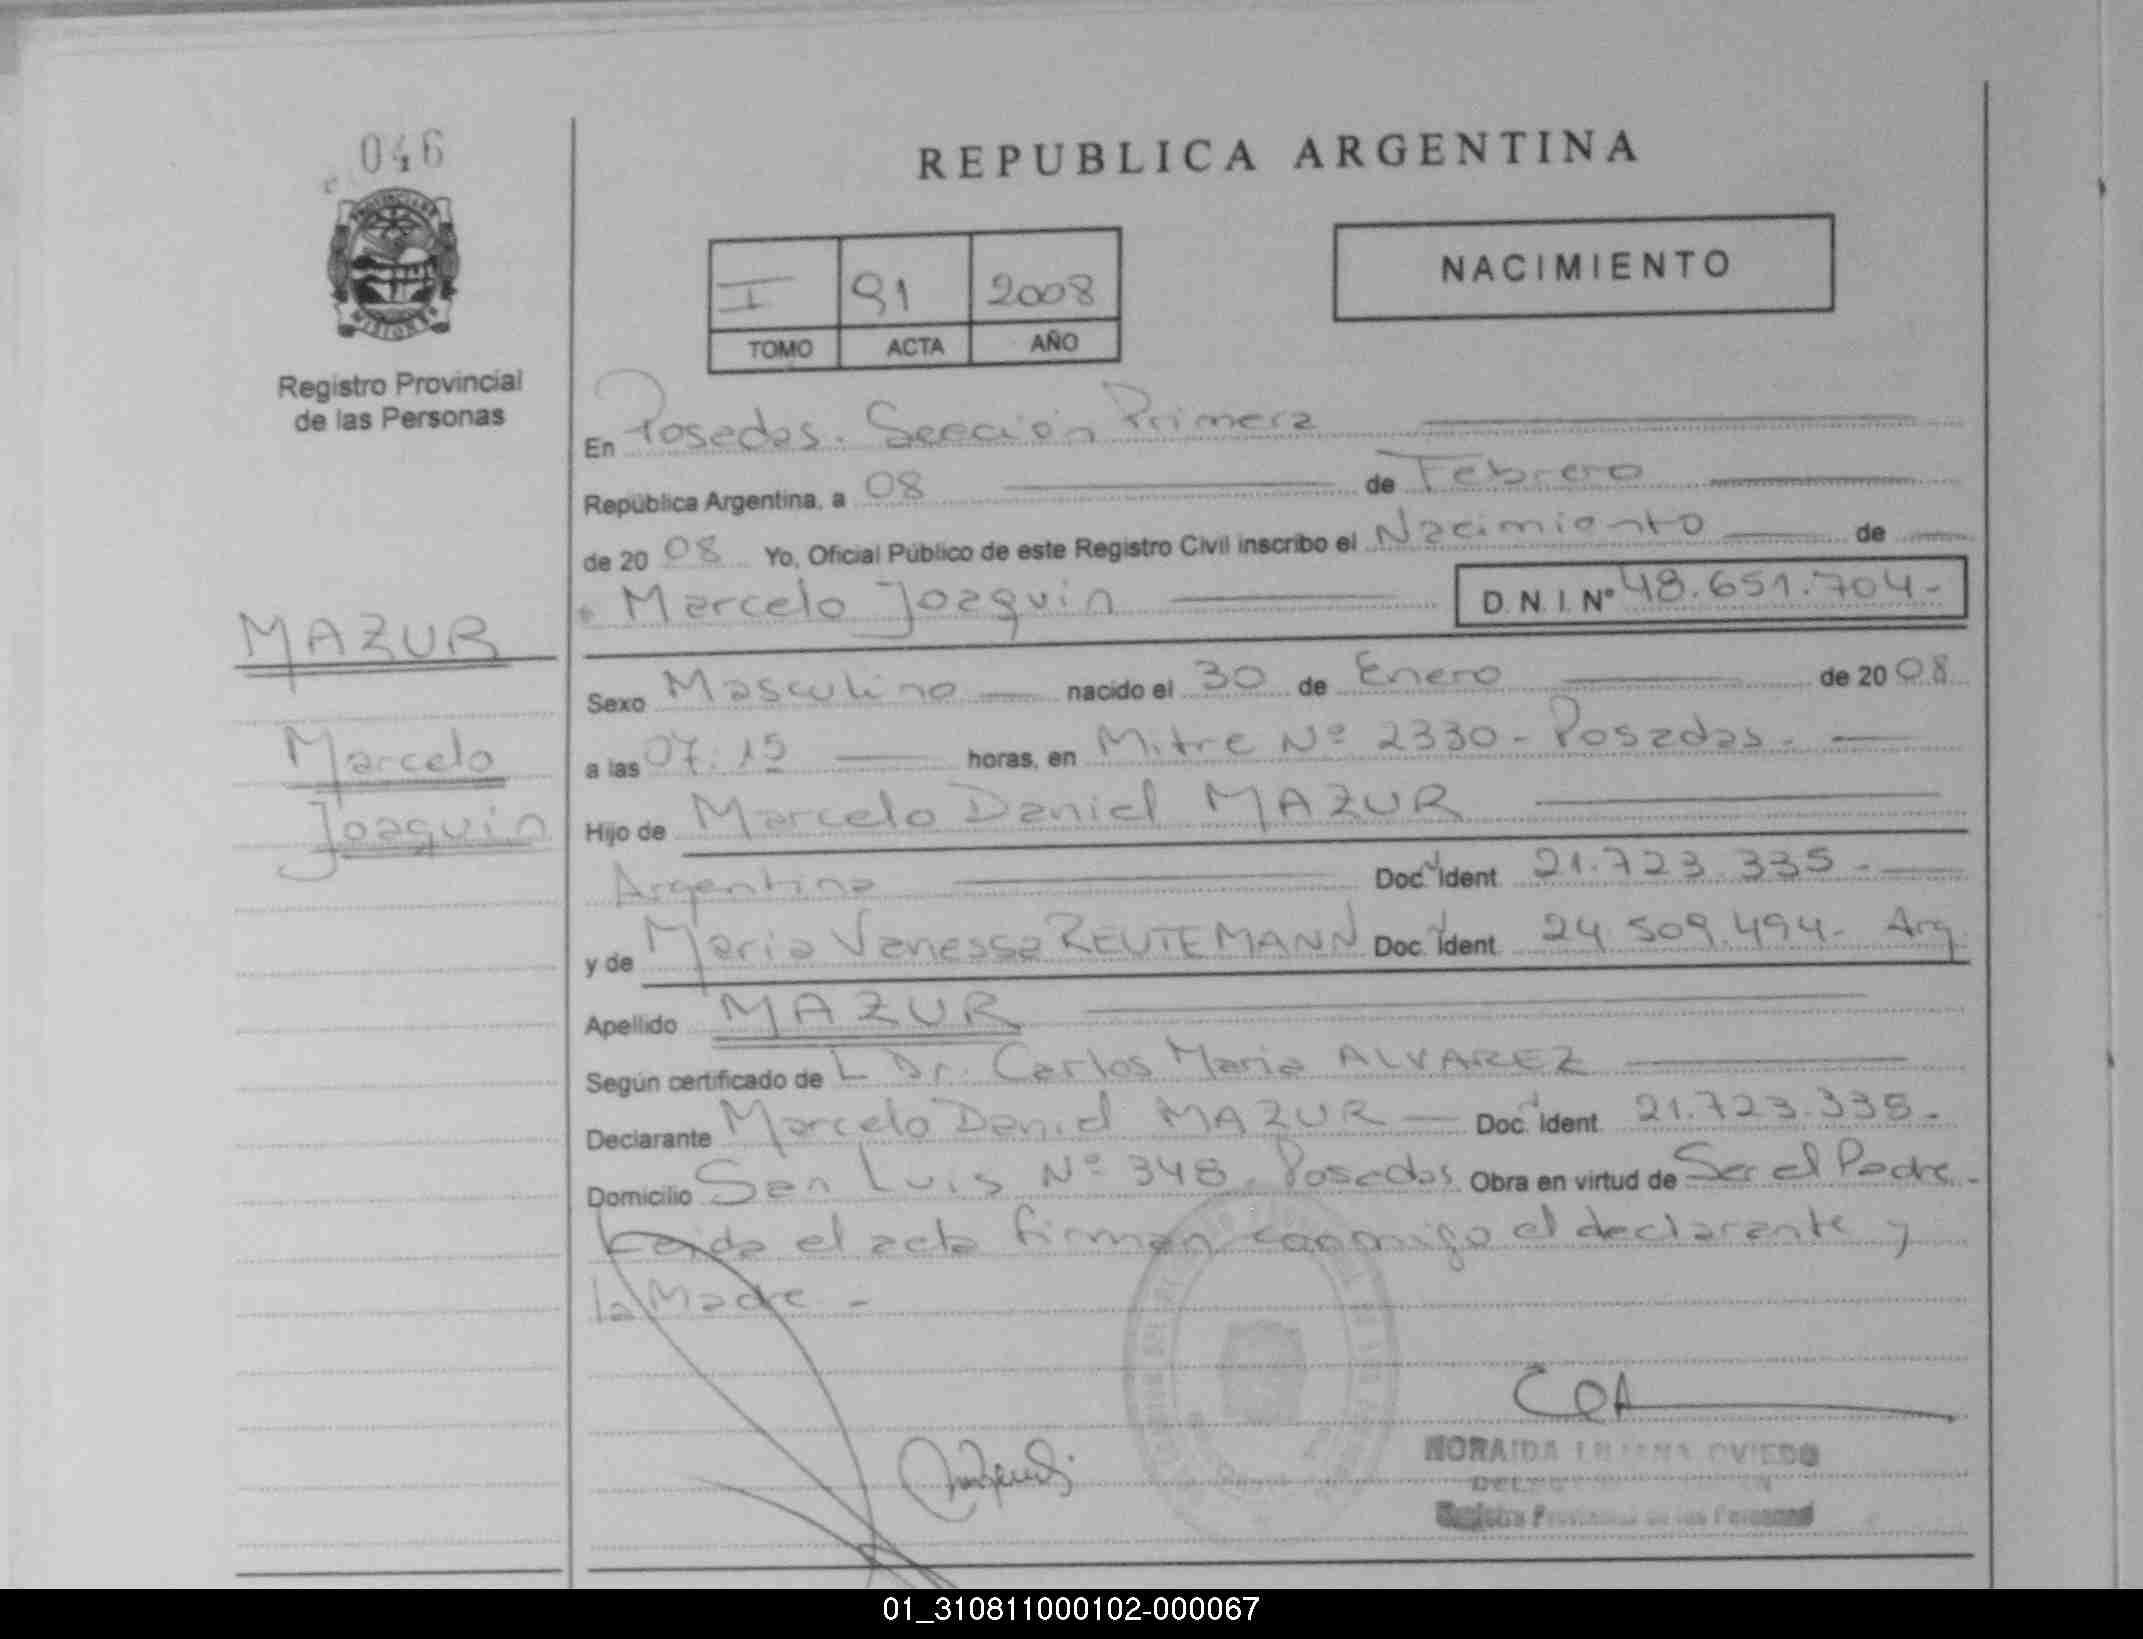 046
PROVINCIA DE
MISIONES
Registro Provincial
de las Personas
REPUBLICA ARGENTINA
I 91 2008
TOMO ACTA AÑO
NACIMIENTO
En Posadas. Sección Primera
República Argentina, a 08 de Febrero
de 20 08 Yo, Oficial Público de este Registro Civil inscribo el Nacimiento de
Marcelo Joaquín D.N.I. Nº 48.651.704-
MAZUR
Marcelo
Joaquín
Sexo Masculino nacido el 30 de Enero de 20 08
a las 07:15 horas, en Mitre Nº 2330 - Posadas.
Hijo de Marcelo Daniel MAZUR
Argentina Doc. Ident. 21.723.335-
y de Maria Vanessa REUTEMANN Doc. Ident. 24.509.494- Arg
Apellido MAZUR
Según certificado de L Dr. Carlos Maria ALVAREZ
Declarante Marcelo Daniel MAZUR Doc. Ident. 21.723.335-
Domicilio San Luis Nº 348. Posadas Obra en virtud de Ser el Padre.-
Leída el acta firman conmigo el declarante y
la Madre.-
NORAIDA LILIANA OVIEDO
Registro Provincial de las Personas
01_310811000102-000067